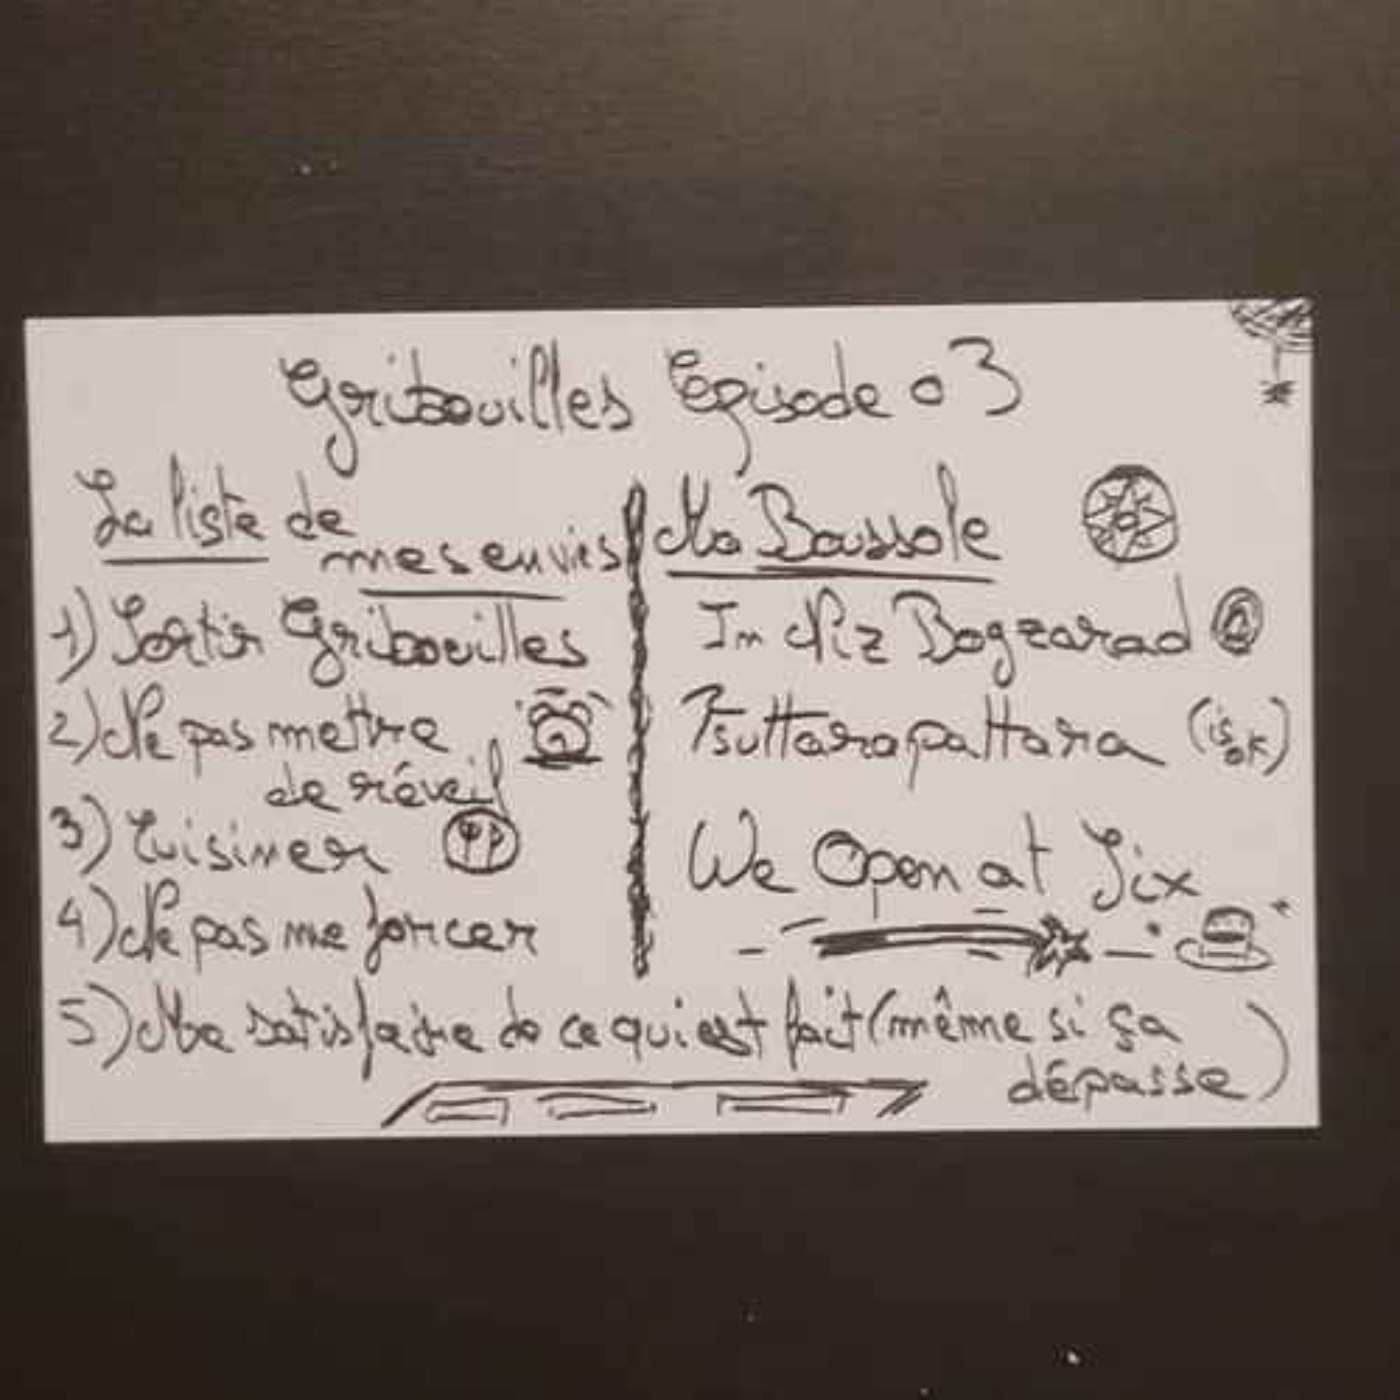 Gribouilles Episode 03
La liste de
mes envies
1) Sortir Gribouilles
2) Ne pas mettre
de réveil
3) Cuisiner
4) Ne pas me forcer
Ma Boussole
In Niz Bogzarad
Tsuttarapattara (is ok)
We Open at Six
5) Me satisfaire de ce qui est fait (même si ça
dépasse)